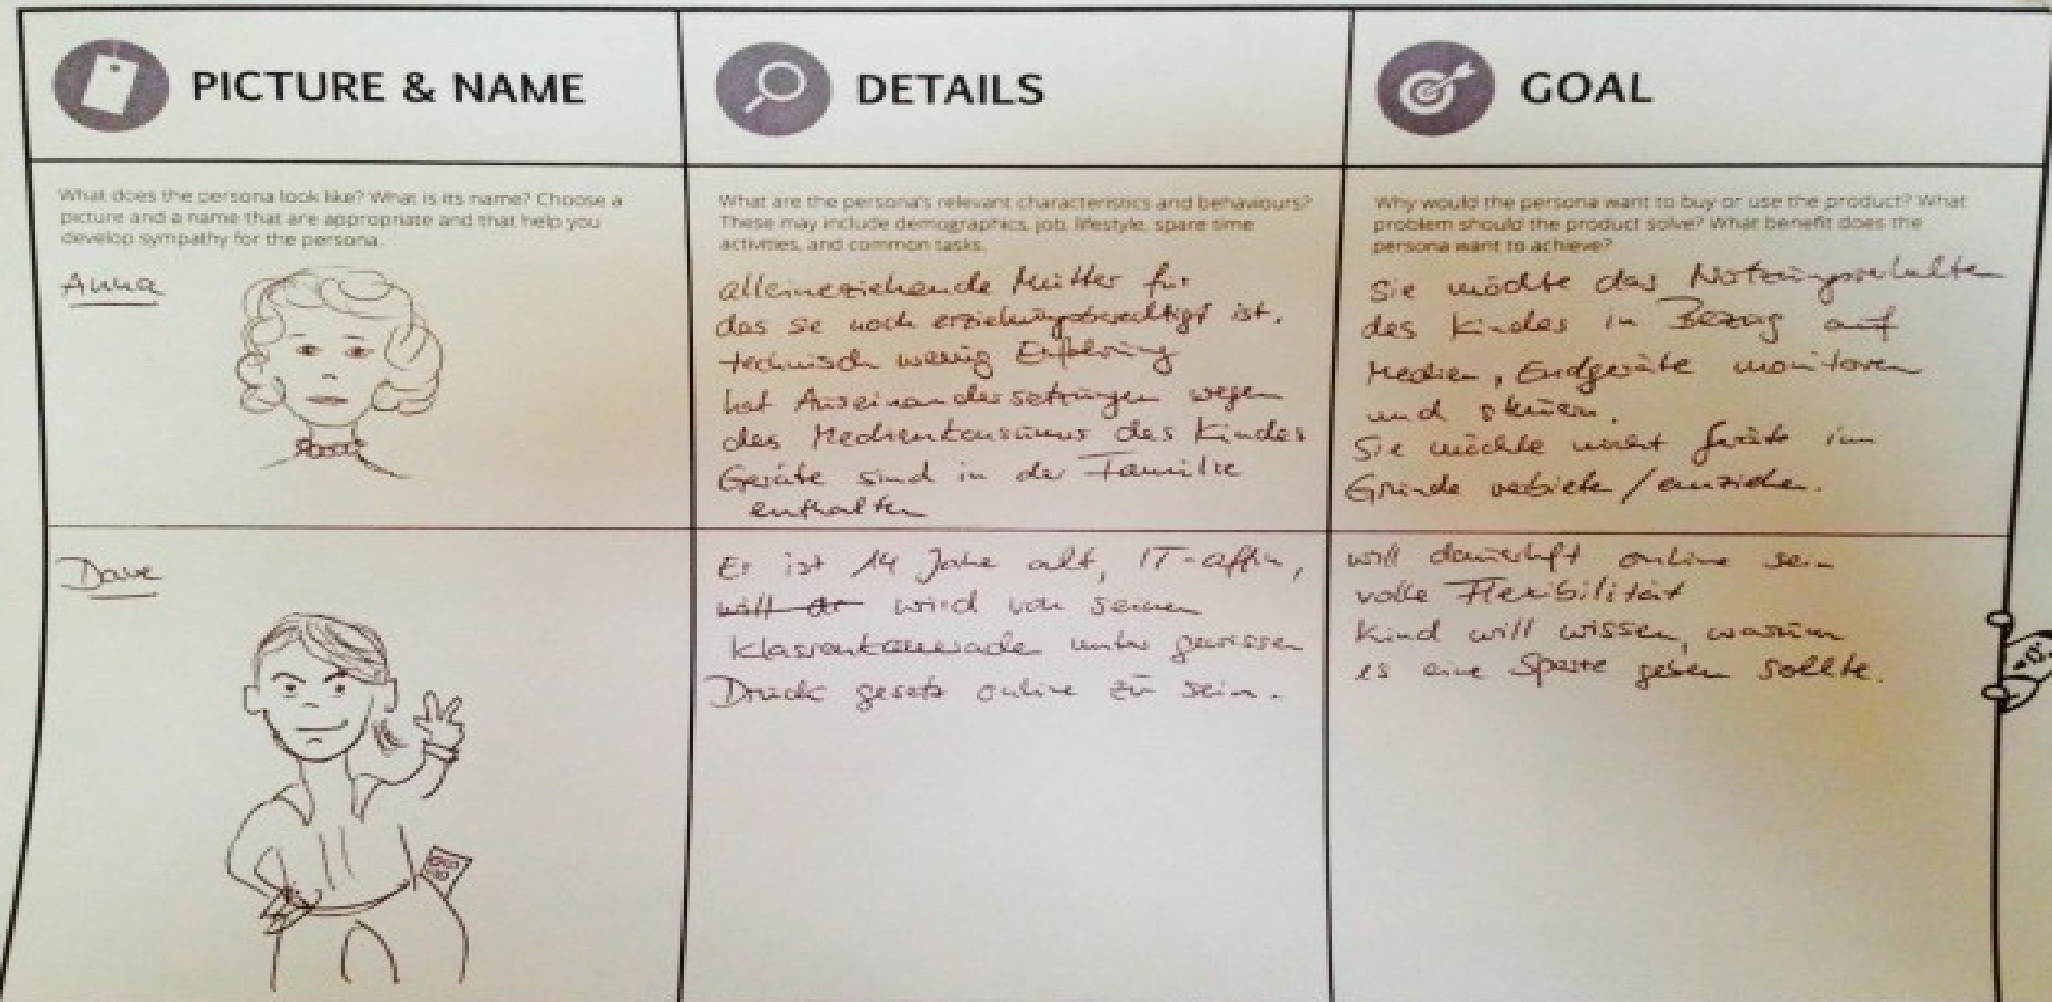 PICTURE & NAME
DETAILS
GOAL
What does the persona look like? What is its name? Choose a
picture and a name that are appropriate and that help you
develop sympathy for the persona.
Anna
What are the persona's relevant characteristics and behaviours?
These may include demographics, job, lifestyle, spare time
activities, and common tasks.
alleineziehende Mutter für
das sie noch erziehungsberechtigt ist.
technisch wenig Erfahrung
hat Auseinandersetzungen wegen
des Medienkonsums des Kindes
Geräte sind in der Familie
enthalten
Why would the persona want to buy or use the product? What
problem should the product solve? What benefit does the
persona want to achieve?
Sie möchte das Nutzungsverhalten
des Kindes in Bezug auf
Medien, Endgeräte monitoren
und steuern.
Sie möchte nicht Geräte im
Grunde verbieten / einziehen.
Dave
Er ist 14 Jahre alt, IT-affin,
wird von seinen
Klassenkamerade unter gewissen
Druck gesetz online zu sein.
will dauerhaft online sein
volle Flexibilität
Kind will wissen, warum
es eine Sperre geben sollte.